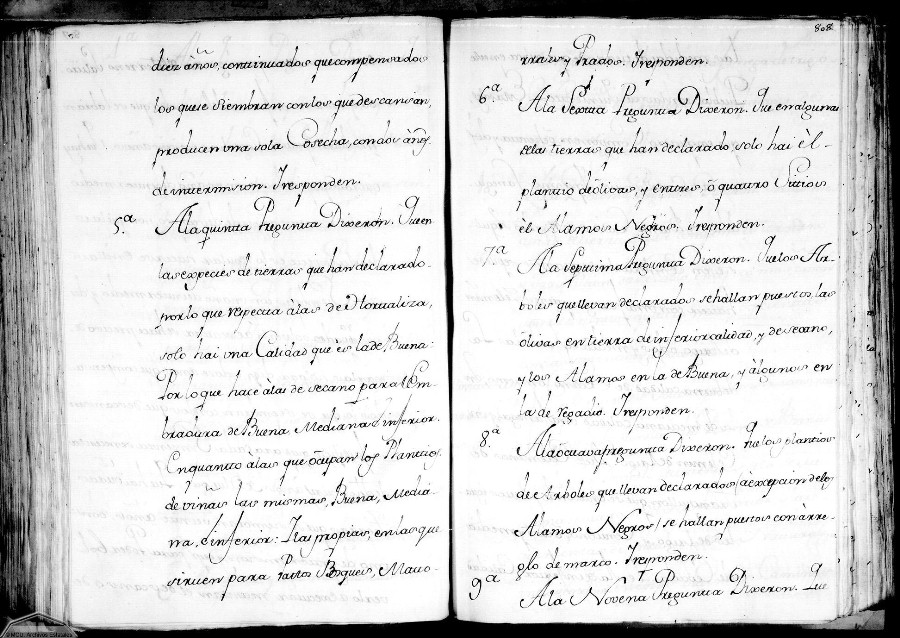 diez años, continuados que compensados
los que se Siembran con los que descansan,
producen una sola Cosecha, con dos años
de intermision. Y responden.
5.a A la quinta Pregunta Dixeron. Que en
las especies de tierras que han declarado
por lo que respecta à las de Hortaliza,
solo hai una Calidad que es la de Buena:
Por lo que hace à las de secano para Sem-
bradura de Buena Mediana è inferior.
En quanto à las que ôcupan los Plantios
de viñas las mismas, Buena, Media-
na, è inferior: Y las propias, en las que
sirven para Pastos Bosques, Mato-
808
rrales y Prados. Y responden.
6.a A la Sexta Pregunta Dixeron. Que en algunas
de las tierras que han declarado, solo hai èl
plantio de ôlivas, y en tres, ô quatro Sitios
èl Alamos Negros. Y responden.
7.a A la Septima Pregunta Dixeron. Que los Ar-
boles que llevan declarados se hallan puestos, las
ôlivas en tierra de inferior calidad, y de secano,
y los Alamos en la de Buena, y àlgunos en
la de regadio. Y responden.
8.a A la ôctava pregunta Dixeron. Que los plantios
de Arboles que llevan declarados (à excepcion de los
Alamos Negros) se hallan puestos con àrre-
glo de marco. Y responden.
9.a A la Novena Pregunta Dixeron. Que
© MCD. Archivos Estatales